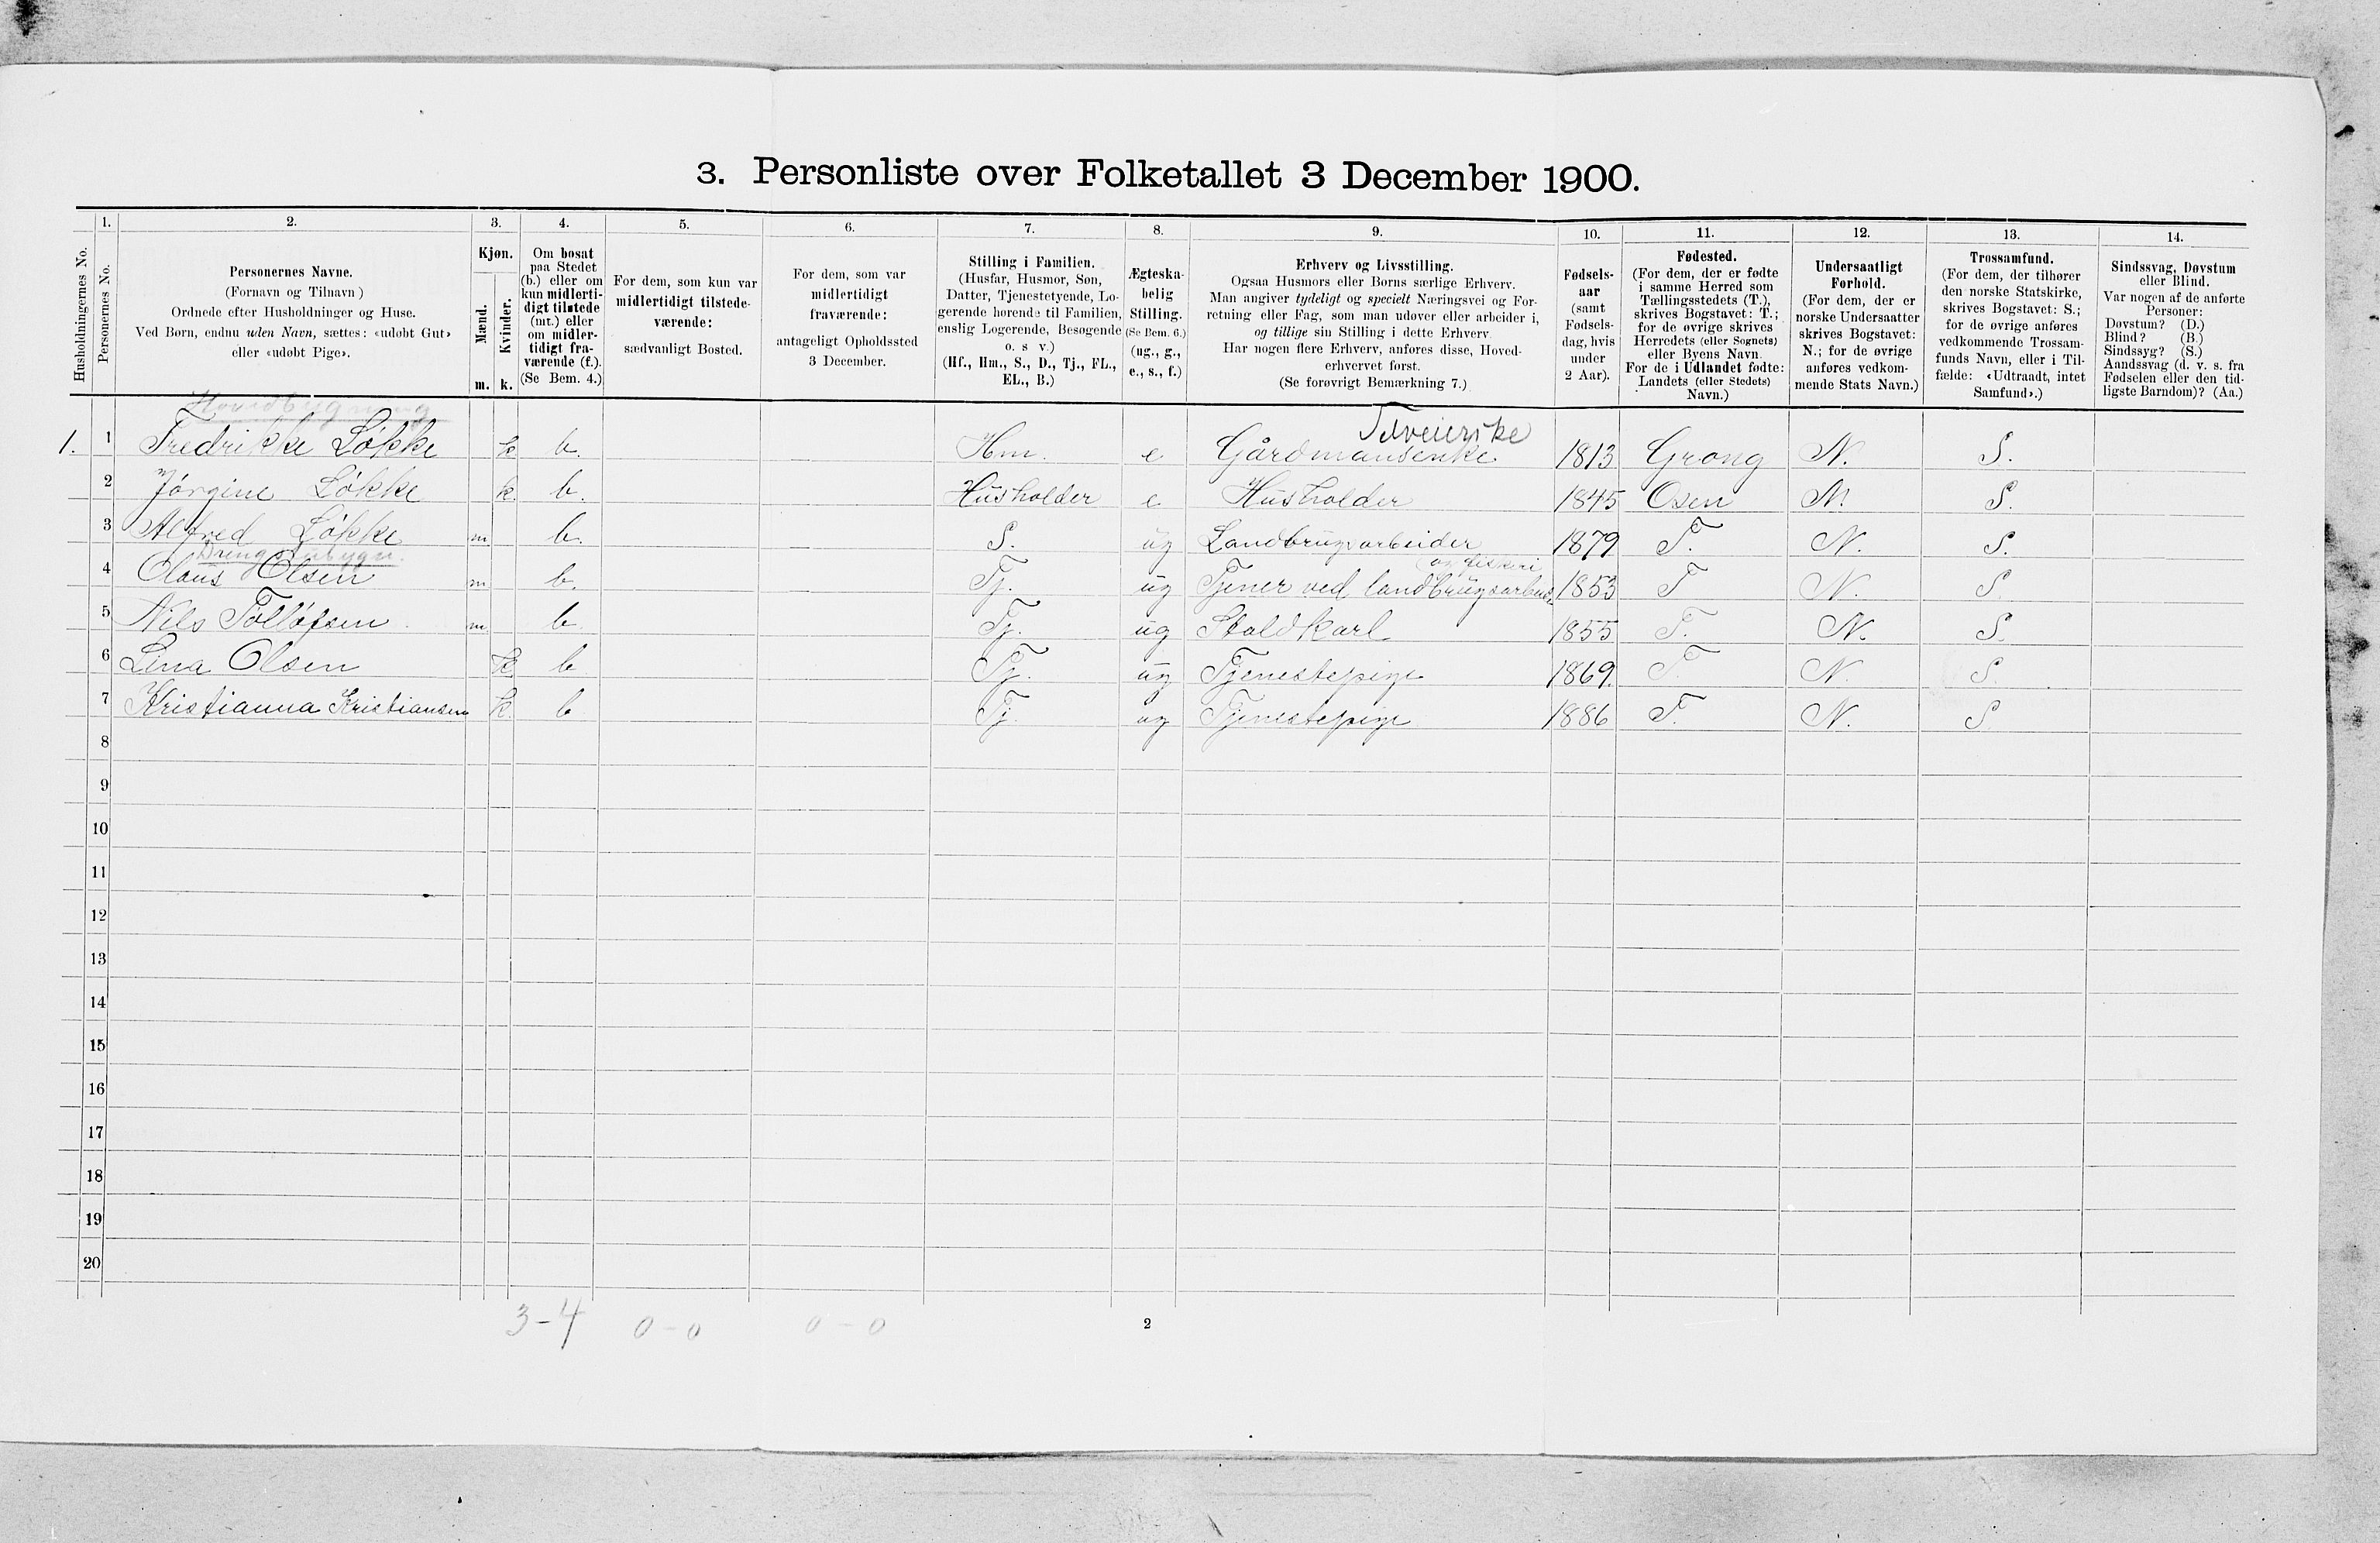 3. Personliste over Folketallet 3 December 1900.
1. 2. 3. 4. 5. 6. 7. 8. 9. 10. 11. 12. 13. 14.
Husholdningernes No.
Personernes No.
Personernes Navne.
(Fornavn og Tilnavn)
Ordnede efter Husholdninger og Huse.
Ved Børn, endnu uden Navn, sættes: «udøbt Gut»
eller «udøbt Pige».
Kjøn.
Mænd.
m.
Kvinder.
k.
Om bosat
paa Stedet
(b.) eller om
kun midlerti-
digt tilstede
(mt.) eller
om midler-
tidigt fra-
værende (f.).
(Se Bem. 4.)
For dem, som kun var
midlertidigt tilstede-
værende:
sædvanligt Bosted.
For dem, som var
midlertidigt
fraværende:
antageligt Opholdssted
3 December.
Stilling i Familien.
(Husfar, Husmor, Søn,
Datter, Tjenestetyende, Lo-
gerende hørende til Familien,
enslig Logerende, Besøgende
o. s v.)
(Hf., Hm., S., D., Tj., FL.,
EL., B.)
Ægteska-
belig
Stilling.
(Se Bem. 6.)
(ug., g.,
e., s., f.)
Erhverv og Livsstilling.
Ogsaa Husmors eller Børns særlige Erhverv.
Man angiver tydeligt og specielt Næringsvei og For-
retning eller Fag, som man udøver eller arbeider i,
og tillige sin Stilling i dette Erhverv.
Har nogen flere Erhverv, anføres disse, Hoved-
erhvervet først.
(Se forøvrigt Bemærkning 7.)
Fødsels-
aar
(samt
Fødsels-
dag, hvis
under
2 Aar).
Fødested.
(For dem, der er fødte
i samme Herred som
Tællingsstedets (T.),
skrives Bogstavet: T.;
for de øvrige skrives
Herredets (eller Sognets)
eller Byens Navn.
For de i Udlandet fødte:
Landets (eller Stedets)
Navn.)
Undersaatligt
Forhold.
(For dem, der er
norske Undersaatter
skrives Bogstavet:
N.; for de øvrige
anføres vedkom-
mende Stats Navn.)
Trossamfund.
(For dem, der tilhører
den norske Statskirke,
skrives Bogstavet: S.;
for de øvrige anføres
vedkommende Trossam-
funds Navn, eller i Til-
fælde: «Udtraadt, intet
Samfund».)
Sindssvag, Døvstum
eller Blind.
Var nogen af de anførte
Personer:
Døvstum? (D.)
Blind? (B.)
Sindssyg? (S.)
Aandssvag (d. v. s. fra
Fødselen eller den tid-
ligste Barndom)? (Aa.)
Hovedbygning
Selveierske
1. 1 Fredrikke Løkke k b. Hm. e Gårdmandsenke 1813 Grong N. S.
2 Jørgine Løkke k. b. Husholder e Husholder 1845 Osen N. S.
3 Alfred Løkke m b. S. ug Landbrugsarbeider 1879 T. N. S.
og fiskeri
4 Olaus Olsen m b. Tj. ug Tjener ved landbrugsarbeid 1853 T N. S
5 Nils Tølløfsen m b. Tj. ug Staldkarl 1855 T. N. S.
6 Lina Olsen k b Tj. ug Tjenestepige 1869. T. N. S.
7 Kristianna Kristiansen k. b Tj. ug Tjenestepige 1886 T. N. S
8
9
10
11
12
13
14
15
16
17
18
19
20
3-4 0-0 0-0
2